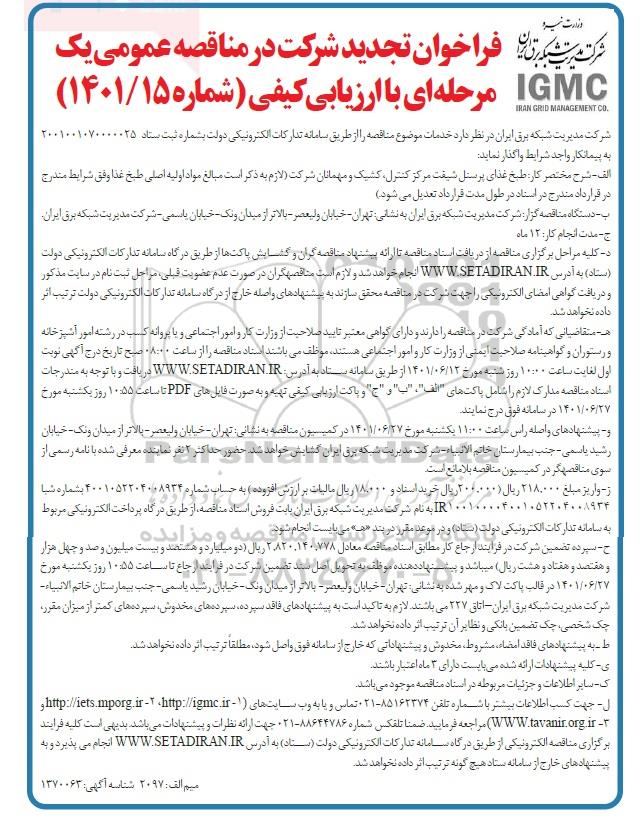 وزارت نیرو
شرکت مدیریت شبکه برق ایران
IGMC
IRAN GRID MANAGEMENT CO.
فراخوان تجدید شرکت در مناقصه عمومی یک
مرحله‌ای با ارزیابی کیفی (شماره ۱۴۰۱/۱۵)
شرکت مدیریت شبکه برق ایران در نظر دارد خدمات موضوع مناقصه را از طریق سامانه تدارکات الکترونیکی دولت بشماره ثبت ستاد ۲۰۰۱۰۰۱۰۷۰۰۰۰۰۲۵
به پیمانکار واجد شرایط واگذار نماید:
الف-شرح مختصر کار: طبخ غذای پرسنل شیفت مرکز کنترل، کشیک و مهمانان شرکت (لازم به ذکر است مبالغ مواد اولیه اصلی طبخ غذا وفق شرایط مندرج
در قرارداد مندرج در اسناد در طول مدت قرارداد تعدیل می شود.)
ب-دستگاه مناقصه گزار: شرکت مدیریت شبکه برق ایران به نشانی: تهران-خیابان ولیعصر-بالاتر از میدان ونک-خیابان یاسمی-شرکت مدیریت شبکه برق ایران.
ج-مدت انجام کار: ۱۲ ماه
د- کلیه مراحل برگزاری مناقصه از دریافت اسناد مناقصه تا ارائه پیشنهاد مناقصه گران و گشــایش پاکت‌ها از طریق درگاه سامانه تدارکات الکترونیکی دولت
(ستاد) به آدرس WWW.SETADIRAN.IR انجام خواهد شد و لازم است مناقصهگران در صورت عدم عضویت قبلی، مراحل ثبت نام در سایت مذکور
و دریافت گواهی امضای الکترونیکی را جهت شرکت در مناقصه محقق سازند به پیشنهادهای واصله خارج از درگاه سامانه تدارکات الکترونیکی دولت ترتیب اثر
داده نخواهد شد.
هـ- متقاضیانی که آمادگی شرکت در مناقصه را دارند و دارای گواهی معتبر تایید صلاحیت از وزارت کار و امور اجتماعی و یا پروانه کسب در رشته امور آشپزخانه
و رستوران و گواهینامه صلاحیت ایمنی از وزارت کار و امور اجتماعی هستند، موظف می باشند اسناد مناقصه را از ساعت ۰۸:۰۰ صبح تاریخ درج آگهی نوبت
اول لغایت ساعت ۱۰:۰۰ روز شنبه مورخ ۱۴۰۱/۰۶/۱۲ از طریق سامانه ســتاد به آدرس: WWW.SETADIRAN.IR دریافت و با توجه به مندرجات
اسناد مناقصه مدارک لازم را شامل پاکت‌های "الف"، "ب" و "ج" و پاکت ارزیابی کیفی تهیه و به صورت فایل‌های PDF تا ساعت ۱۰:۵۵ روز یکشنبه مورخ
۱۴۰۱/۰۶/۲۷ در سامانه فوق درج نمایند.
و- پیشنهادهای واصله راس ساعت ۱۱:۰۰ یکشنبه مورخ ۱۴۰۱/۰۶/۲۷ در کمیسیون مناقصه به نشانی: تهران-خیابان ولیعصر-بالاتر از میدان ونک-خیابان
رشید یاسمی-جنب بیمارستان خاتم الانبیاء-شرکت مدیریت شبکه برق ایران گشایش خواهد شد. حضور حداکثر ۲ نفر نماینده معرفی شده با نامه رسمی از
سوی مناقصهگر در کمیسیون مناقصه بلامانع است.
ز-واریز مبلغ ۲۱۸.۰۰۰ ریال (۲۰۰.۰۰۰ ریال خرید اسناد و ۱۸.۰۰۰ ریال مالیات بر ارزش افزوده) به حساب شماره ۴۰۰۱۰۵۲۲۰۴۰۰۸۹۳۴ بشماره شبا
به نام شرکت مدیریت شبکه برق ایران بابت فروش اسناد مناقصه، از طریق درگاه پرداخت الکترونیکی مربوط
به سامانه تدارکات الکترونیکی دولت (ستاد) و در موعد مقرر در بند «هـ» می‌بایست انجام شود.
ح-سپرده تضمین شرکت در فرایند ارجاع کار مطابق اسناد مناقصه معادل ۲,۸۲۰,۱۴۰,۷۷۸ ریال (دو میلیارد و هشتصد و بیست میلیون و صد و چهل هزار
و هفتصد و هفتاد و هشت ریال) میباشد و پیشنهاددهنده موظف به تحویل اصل سند تضمین شرکت در فرایند ارجاع تا ســاعت ۱۰:۵۵ روز یکشنبه مورخ
۱۴۰۱/۰۶/۲۷ در قالب پاکت لاک و مهر شده به نشانی: تهران-خیابان ولیعصر- بالاتر از میدان ونک-خیابان رشید یاسمی-جنب بیمارستان خاتم الانبیاء-
شرکت مدیریت شبکه برق ایران-اتاق ۲۲۷ می باشند. لازم به تاکید است به پیشنهادهای فاقد سپرده، سپرده‌های مخدوش، سپرده‌های کمتر از میزان مقرر،
چک شخصی، چک تضمین بانکی و نظایر آن ترتیب اثر داده نخواهد شد.
ط -به پیشنهادهای فاقد امضاء، مشروط، مخدوش و پیشنهاداتی که خارج از سامانه فوق واصل شود، مطلقاً ترتیب اثر داده نخواهد شد.
ی-کلیه پیشنهادات ارائه شده می‌بایست دارای ۳ ماه اعتبار باشند.
ک-سایر اطلاعات و جزئیات مربوطه در اسناد مناقصه موجود می‌باشد.
ل- جهت کسب اطلاعات بیشتر با شــماره تلفن ۸۵۱۶۲۳۷۴-۰۲۱ تماس و یا به وب ســایت‌های (۱- http://igmc.ir، ۲- http://iets.mporg.ir و
۳- WWW.tavanir.org.ir) مراجعه فرمایید. ضمنا تلفکس شماره ۸۸۶۴۴۷۸۶-۰۲۱ جهت ارائه نظرات و پیشنهادات می‌باشد. بدیهی است کلیه فرایند
برگزاری مناقصه الکترونیکی از طریق درگاه ســامانه تدارکات الکترونیکی دولت (ســتاد) به آدرس WWW.SETADIRAN.IR انجام می پذیرد و به
پیشنهادهای خارج از سامانه ستاد هیچ گونه ترتیب اثر داده نخواهد شد.
میم الف: ۲۰۹۷ شناسه آگهی: ۱۳۷۰۰۶۳